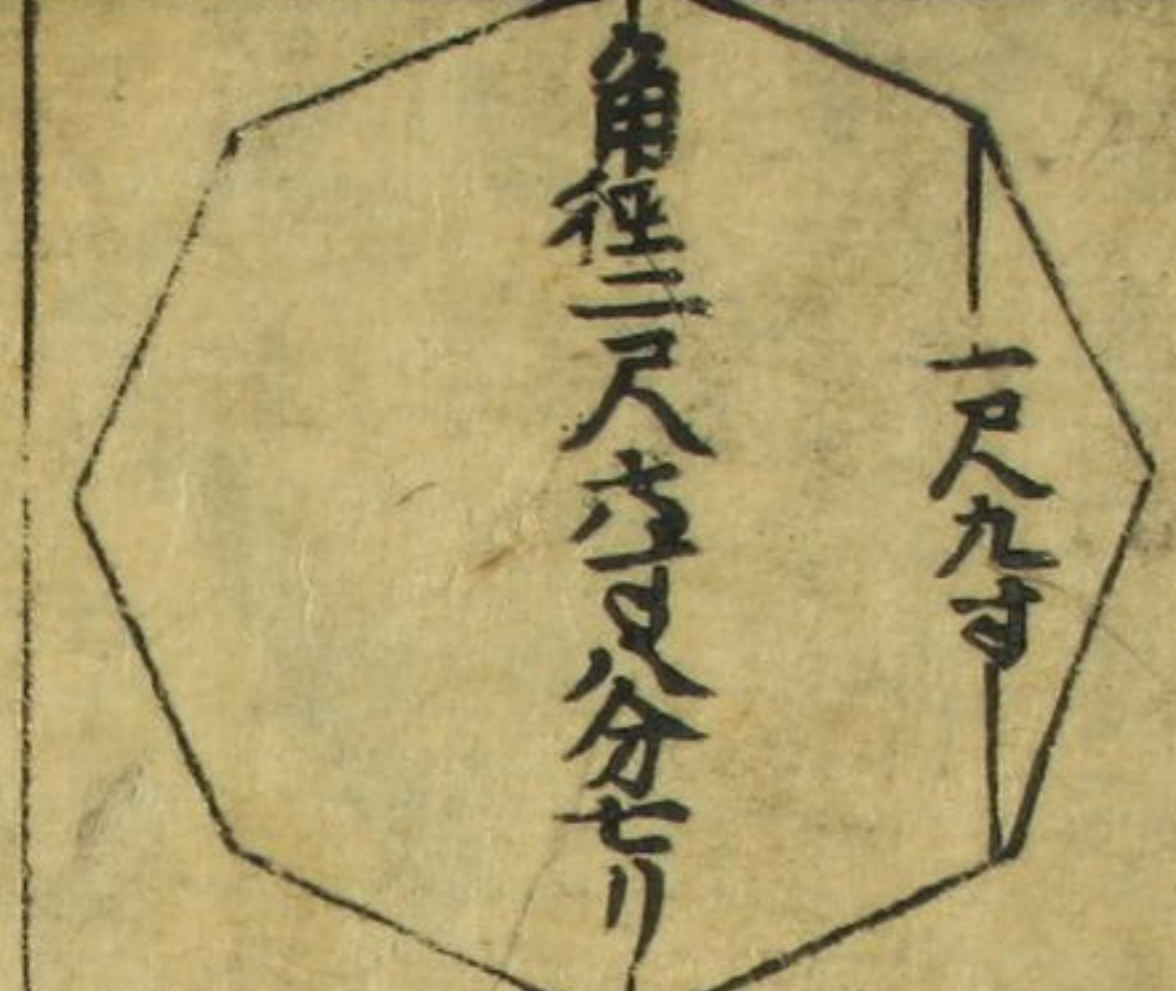 一尺九寸
角徑二尺六寸八分七リ